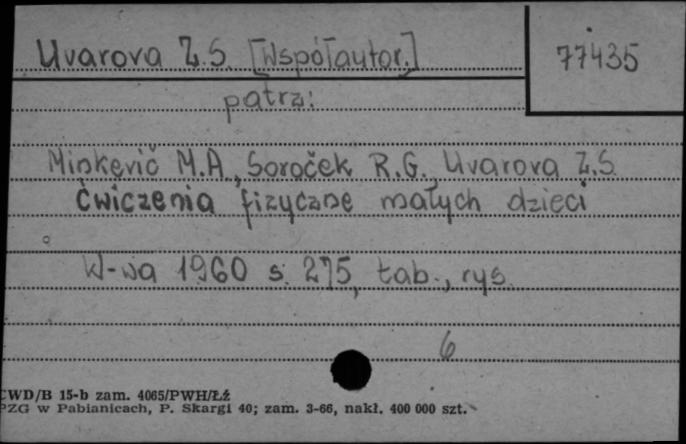 Uvarova Z.S. [Współautor.]
77435
patrz:
Minkevič M.A., Soroček R.G., Uvarova Z.S.
Ćwiczenia fizyczne małych dzieci
W-wa 1960 s. 275, tab., rys.
6
CWD/B 15-b zam. 4065/PWH/Łź
PZG w Pabianicach, P. Skargi 40; zam. 3-66, nakł. 400 000 szt.